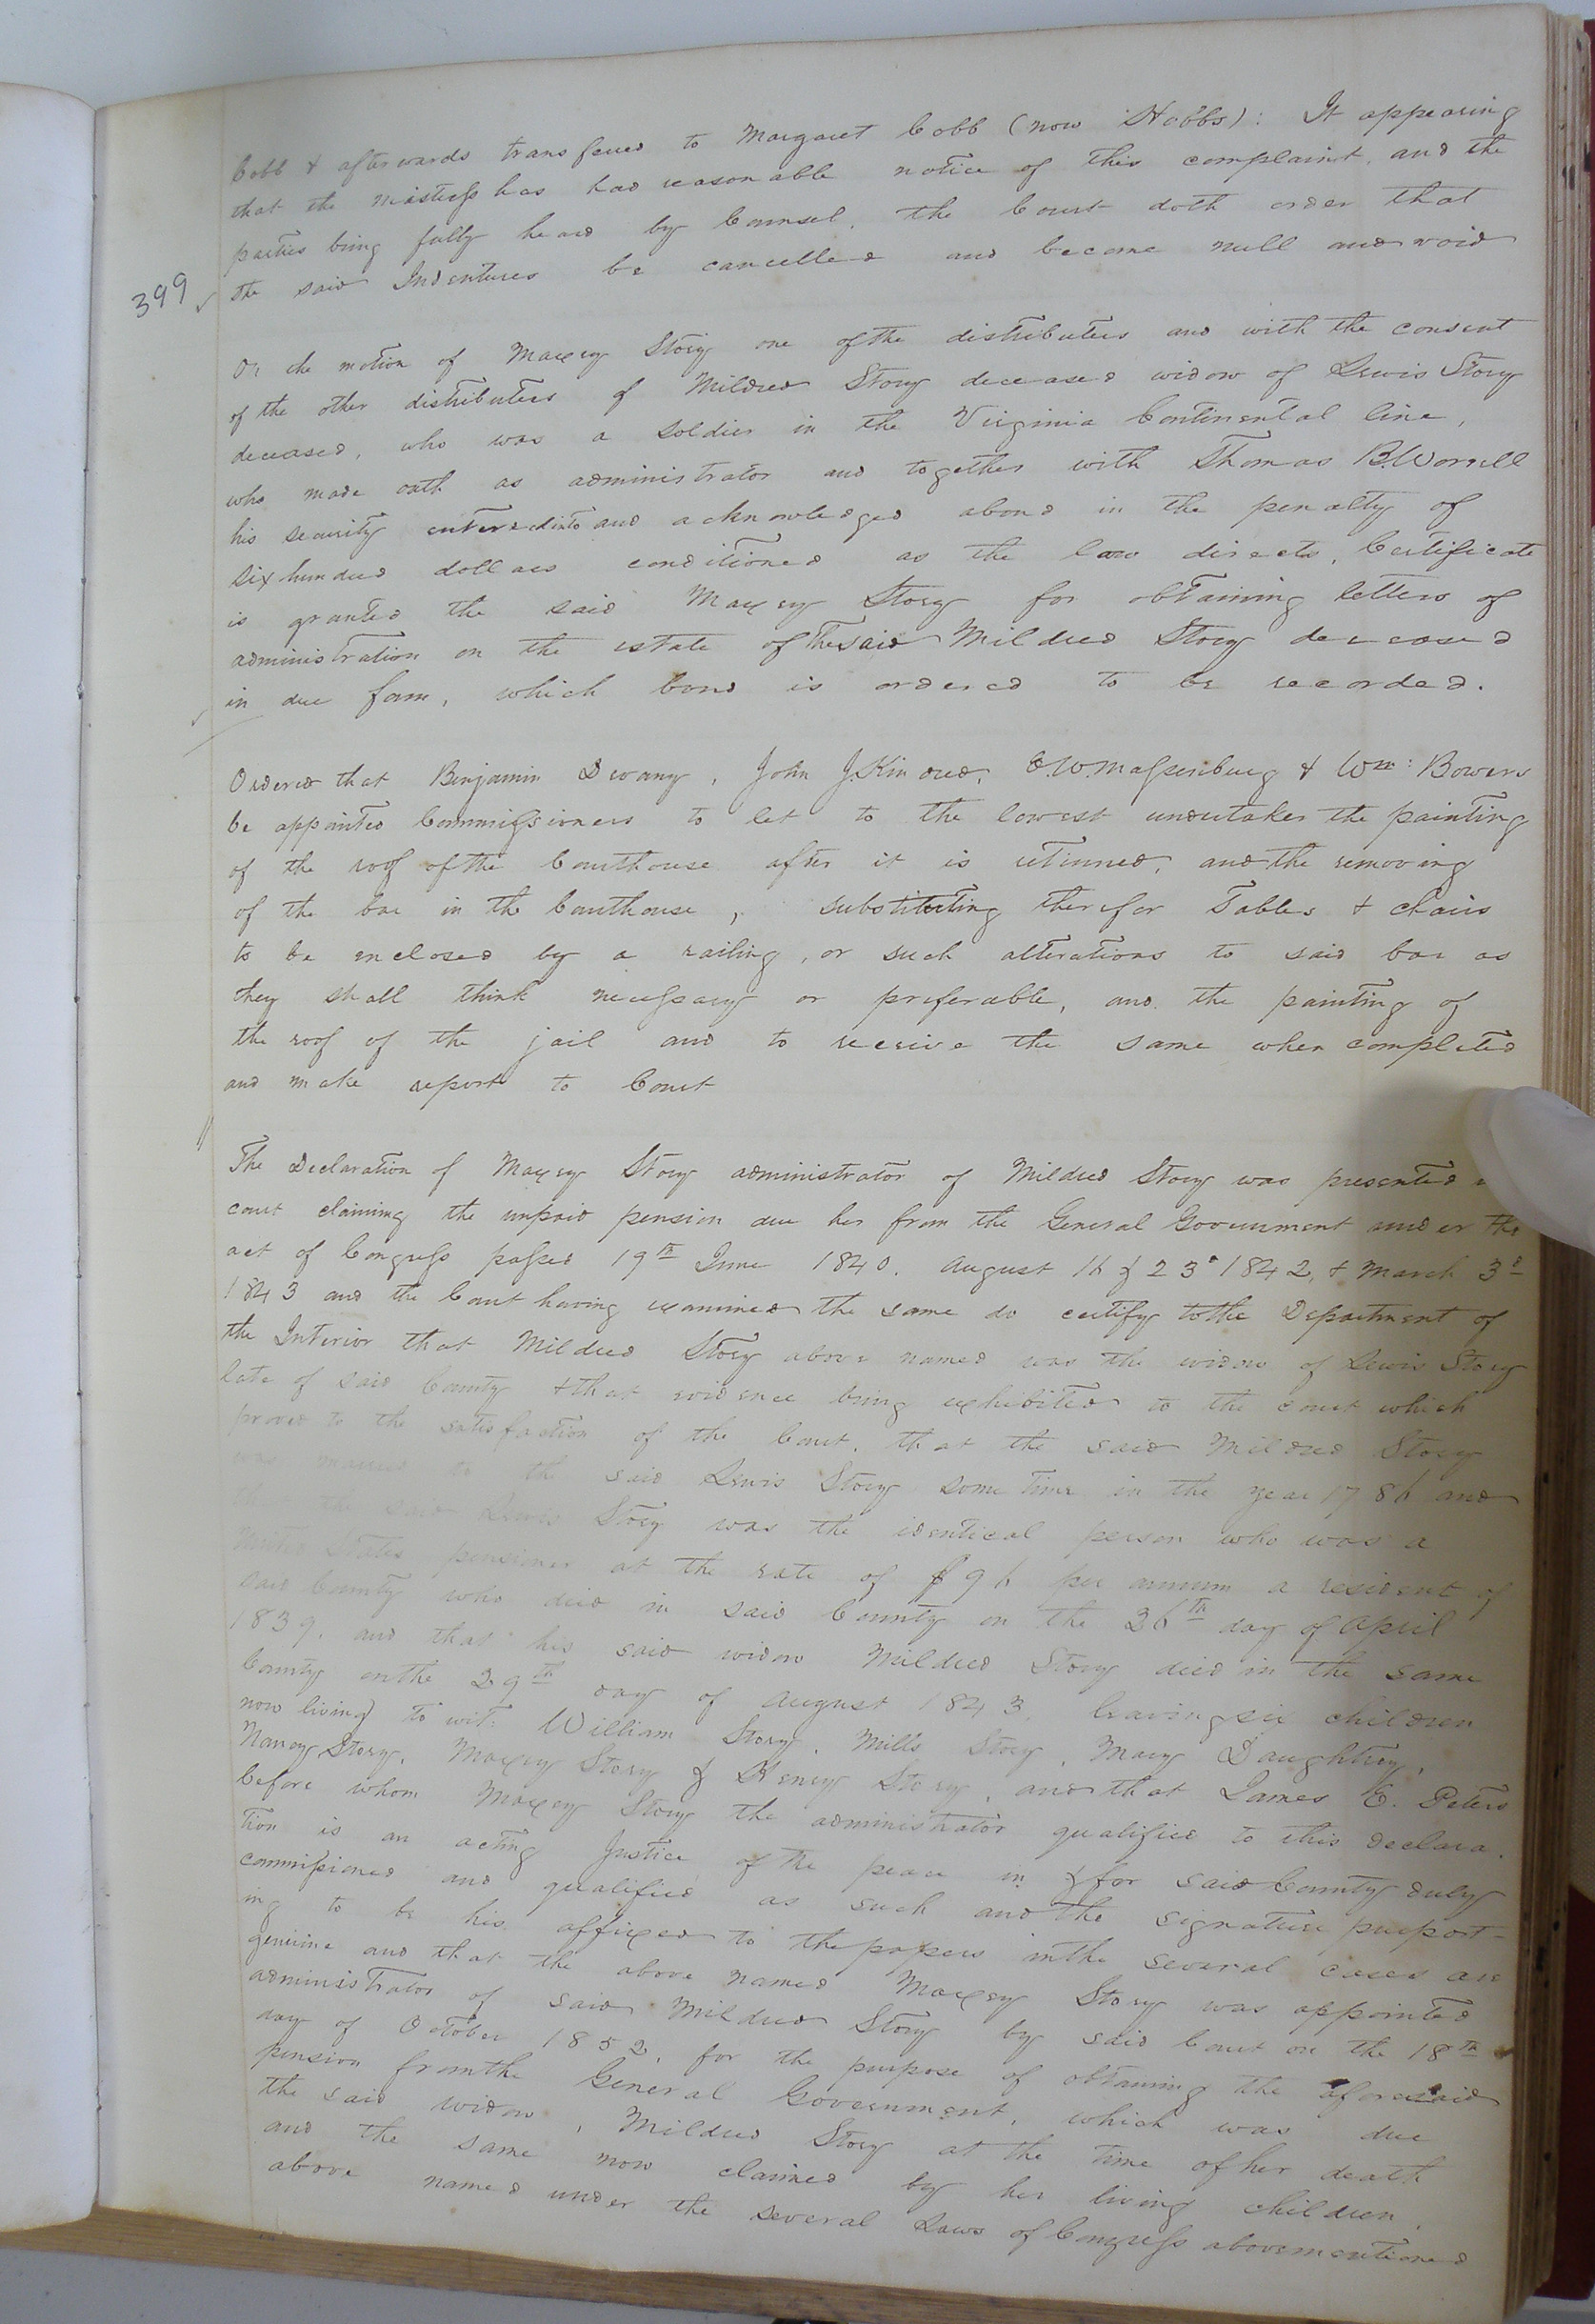 Cobb & afterwards transfered to Margaret Cobb (now Hobbs): It appearing
that the mistress has had reasonable notice of this complaint, and the
parties being fully heard by Counsel, the Court doth order that
the said Indentures be cancelled and become null and void
399
On the motion of Maxey Story one of the distributees and with the consent
of the other distributees of Mildred Story deceased widow of Lewis Story
deceased, who was a soldier in the Virginia Continental line,
who made oath as administrator and together with Thomas B. Worrell
his security entered into and acknowledged a bond in the penalty of
six hundred dollars conditioned as the law directs, Certificate
is granted the said Maxey Story for obtaining letters of
administration on the estate of the said Mildred Story deceased
in due form, which bond is ordered to be recorded.
Ordered that Benjamin Devany, John J. Kindred, O. W. Massenburg & Wm: Bowers
be appointed Commissioners to let to the lowest undertaker the painting
of the roof of the Courthouse after it is retinned, and the removing
of the bar in the Courthouse, substituting therefor Tables & chairs
to be enclosed by a railing, or such alterations to said bar as
they shall think necessary or preferable, and the painting of
the roof of the jail and to receive the same when completed
and make report to Court
The Declaration of Maxey Story administrator of Mildred Story was presented
court claiming the unpaid pension due her from the General Government under the
act of Congress passed 19th June 1840. August 16 & 23d 1842, & March 3d
1843 and the Court having examined the same do certify to the Department of
the Interior that Mildred Story above named was the widow of Lewis Story
late of said County & that evidence being exhibited to the court which
proved to the satisfaction of the Court, that the said Mildred Story
was married to the said Lewis Story some time in the year 1786 and
said Lewis Story was the identical person who was a
United States pensioner at the rate of $96 per annum a resident of
said County who died in said County on the 26th day of April
1839. and that his said widow Mildred Story died in the same
County on the 29th day of August 1843. leaving six children
now living to wit: William Story, Mills Story, Mary Daughtrey,
Nancy Story, Maxey Story & Henry Story, and that James E. Peters
before whom Maxey Story the administrator qualified to this declara-
tion is an acting Justice of the peace in & for said County duly
commissioned and qualified as such and the signature purport-
ing to be his affixed to the papers in the several cases are
genuine and that the above named Maxey Story was appointed
administrator of said Mildred Story by said Court on the 18th
day of October 1852, for the purpose of obtaining the aforesaid
pension from the General Government, which was due
the said widow, Mildred Story at the time of her death
and the same now claimed by her living children,
above named under the several Laws of Congress abovementioned